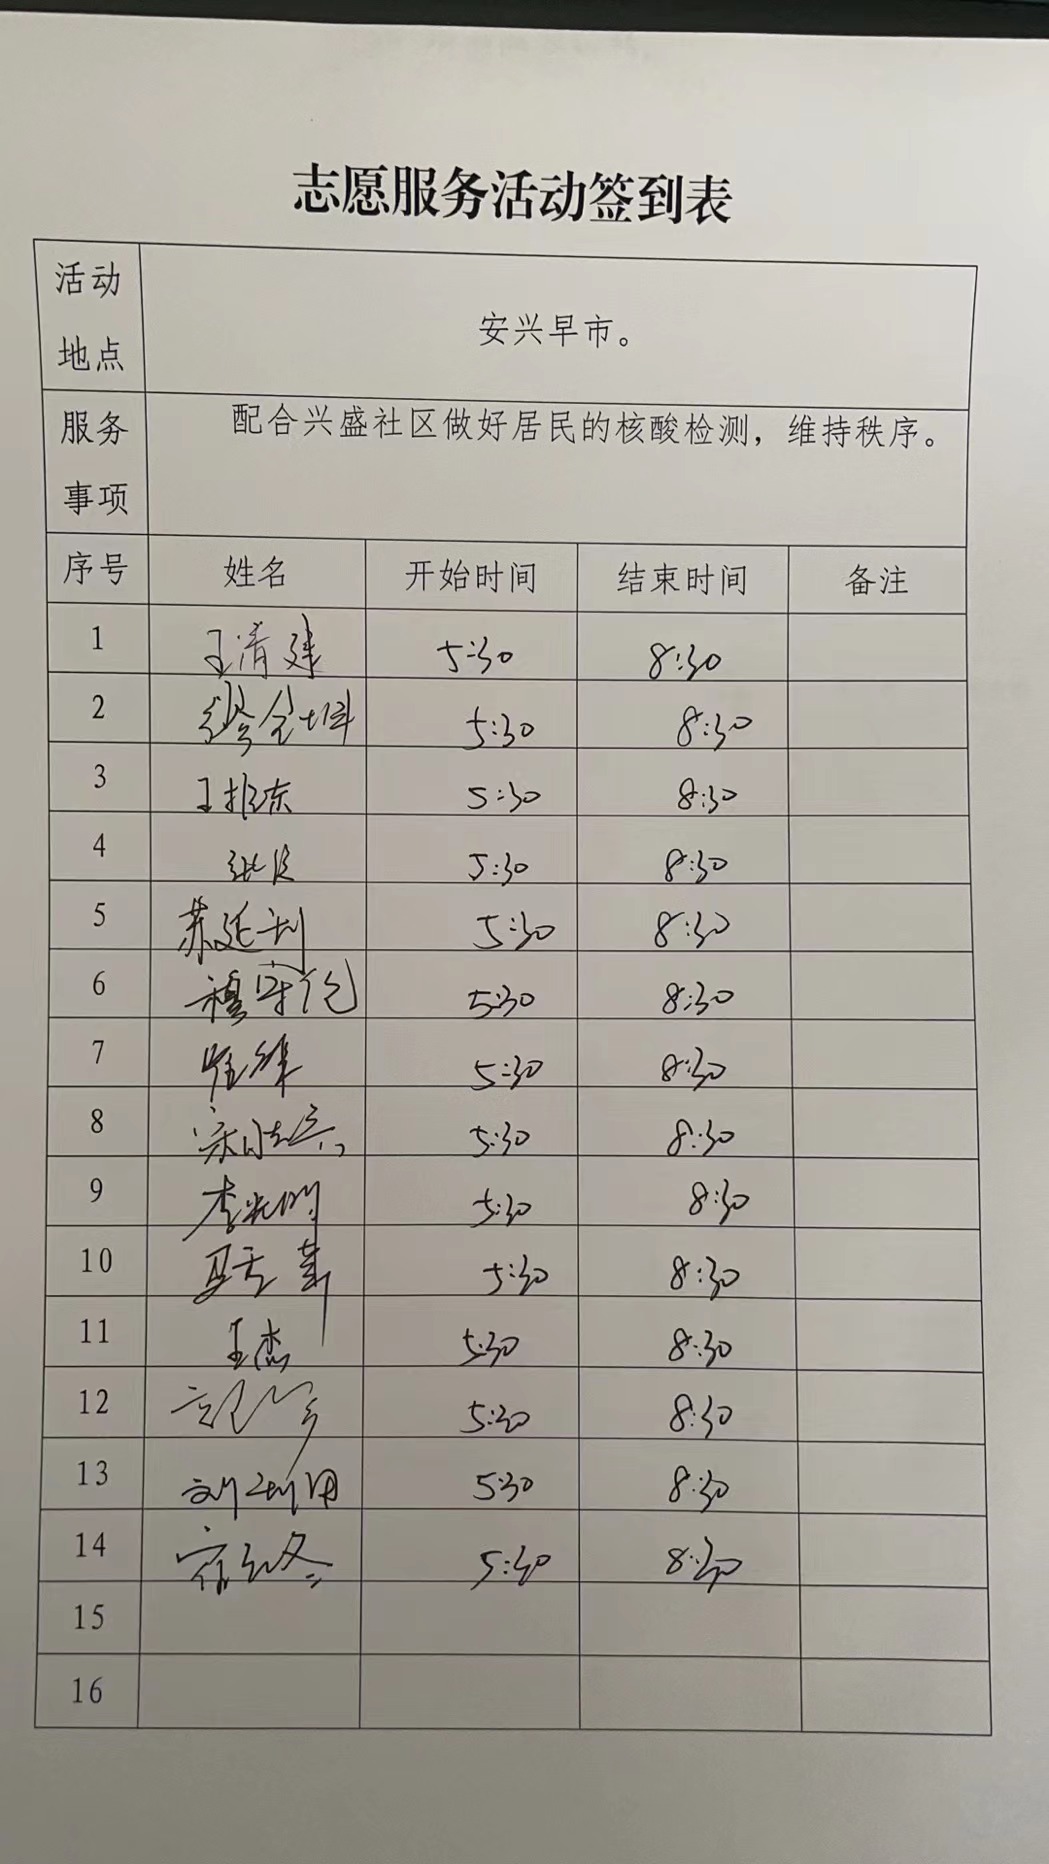 志愿服务活动签到表
活动地点 安兴早市。
服务事项 配合兴盛社区做好居民的核酸检测，维持秩序。
序号 姓名 开始时间 结束时间 备注
1 王清建 5:30 8:30
2 5:30 8:30
3 王振东 5:30 8:30
4 5:30 8:30
5 苏延利 5:30 8:30
6 穆守伦 5:30 8:30
7 5:30 8:30
8 5:30 8:30
9 李光明 5:30 8:30
10 5:30 8:30
11 王杰 5:30 8:30
12 5:30 8:30
13 5:30 8:30
14 5:30 8:30
15
16